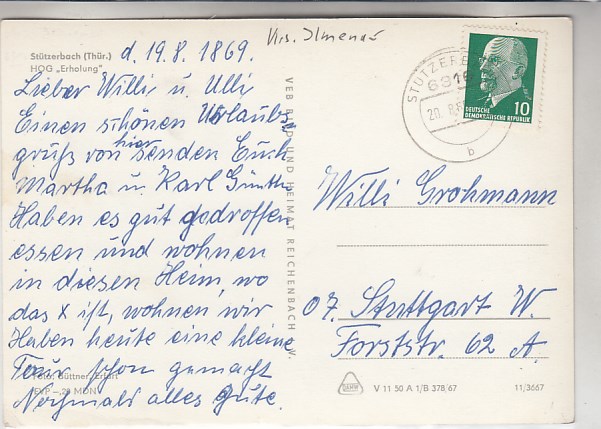 Stützerbach (Thür.)
HOG „Erholung"
d. 19.8. 1869.
Lieber Willi u. Ulli
Einen schönen Urlaubs
gruß von hier senden Euch
Martha u. Karl Günther
Haben es gut gedroffen
essen und wohnen
in diesen Heim, wo
das x ist, wohnen wir
Haben heute eine kleine
Tour schon gemacht
Nochmals alles Gute.
Foto: Büttner, Erfurt
EVP —,20 MDN
VEB BILD UND HEIMAT REICHENBACH I. V.
Krs. Ilmenau
STÜTZERB
20. 8.
b
10
DEUTSCHE
DEMOKRATISCHE REPUBLIK
Willi Grohmann
07. Stuttgart W.
Forststr. 62 A.
V 11 50 A 1/B 378/67
11/3667